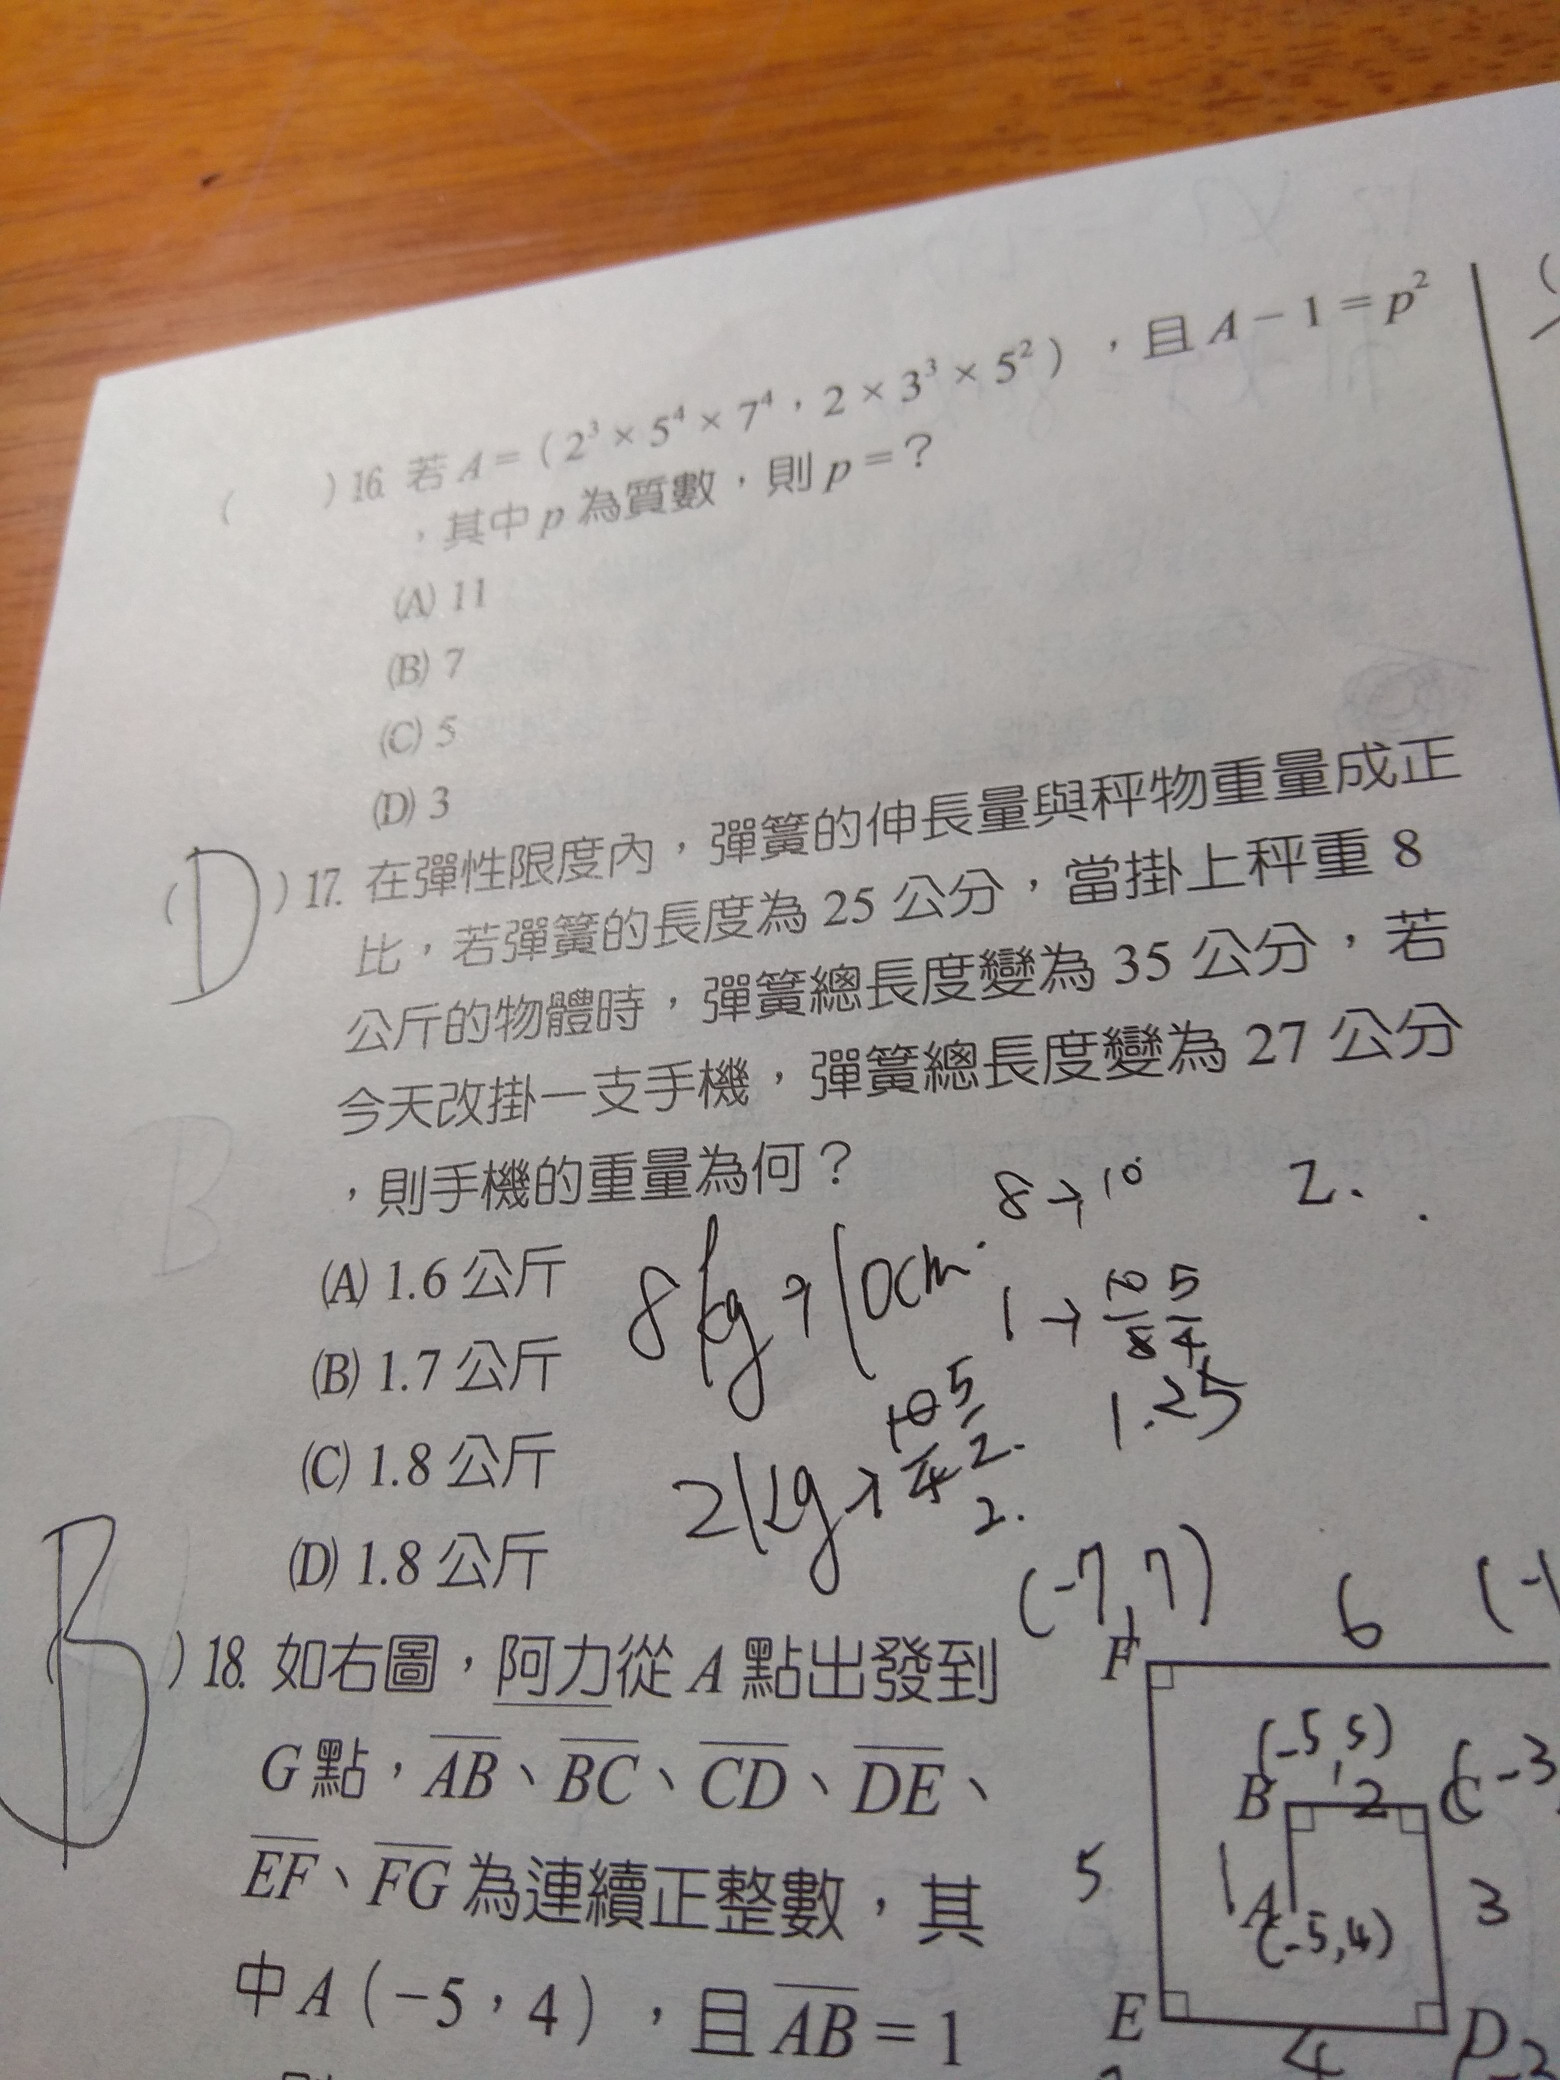 ( )16. 若 A =(2³ × 5⁴ × 7⁴,2 × 3³ × 5²),且 A − 1 = p²
,其中 p 為質數,則 p =?
(A) 11
(B) 7
(C) 5
(D) 3
(D)17. 在彈性限度內,彈簧的伸長量與秤物重量成正
比,若彈簧的長度為 25 公分,當掛上秤重 8
公斤的物體時,彈簧總長度變為 35 公分,若
今天改掛一支手機,彈簧總長度變為 27 公分
,則手機的重量為何?
B
8→10
2.
(A) 1.6 公斤
8kg→10cm
1→10/8 5/4
(B) 1.7 公斤
1.25
(C) 1.8 公斤
2kg→10/4 5/2
2.
(D) 1.8 公斤
(-7,7)
6
(B)18. 如右圖,阿力從 A 點出發到
F
G 點,AB、BC、CD、DE、
(-5,5)
B
2
C
(-3
EF、FG 為連續正整數,其
5
1
A
(-5,4)
3
中 A(−5,4),且 AB = 1
E
4
D